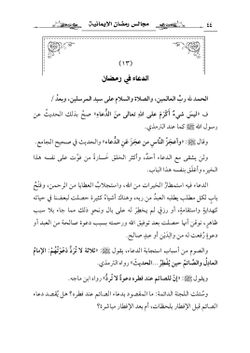 ٤٤
مجالس رمضان الإيمانية
(١٣)
الدعاء في رمضان
الحمد لله ربِّ العالمين، والصلاة والسلام على سيد المرسلين، وبعدُ/
ف «ليسَ شيءٌ أكْرَمُ على اللهِ تعالى منَ الدُّعاءِ» صحَّ بذلك الحديثُ عن
رسول الله ﷺ كما عند الترمذي.
وقال ﷺ: «وأعجَزُ النَّاسِ من عجزَ عنِ الدُّعاءِ» والحديث في صحيح الجامع.
ولن يشقى مع الدعاء أحدٌ، وأكثر الخلق خسارةً من فوَّت على نفسه هذا
الخير، وأغلَق بنفسه هذا الباب.
الدعاء فيه استمطارُ الخيراتِ من الله، واستجلابُ العطايا من الرحمن، وفتحُ
بابٍ لكلِّ مطلبٍ يطلبه العبدُ من ربه، وهناك أشياءُ كثيرة حصلت لبعضنا في حياته
كهدايةٍ واستقامةٍ، أو رزقٍ لم يخطر له على بالٍ ونحوِ ذلك مما جاء بلا سببٍ
ظاهرٍ، نوقن أنها حصلت بعد توفيق الله ورحمته بسبب دعوةٍ صالحةٍ من العبد أو
دعوةٍ رُفعت له من والدَيْن أو عبدٍ صالحٍ.
والصوم من أسباب استجابة الدعاء، يقول ﷺ: «ثلاثةٌ لا تُردُّ دَعْوَتُهُمْ: الإمامُ
العادلُ والصَّائمُ حينَ يُفْطِرُ ...الحديثَ» رواه الترمذي.
ويقول ﷺ: «إنَّ للصائمِ عندَ فطرِه دعوةً لا تُردُّ» رواه ابن ماجه.
وسُئلت اللجنة الدائمة: ما المقصود بدعاء الصائم عند فطره؟ هل يُقصد دعاء
الصائم قبل الإفطار بلحظات، أم بعد الإفطار مباشرة؟